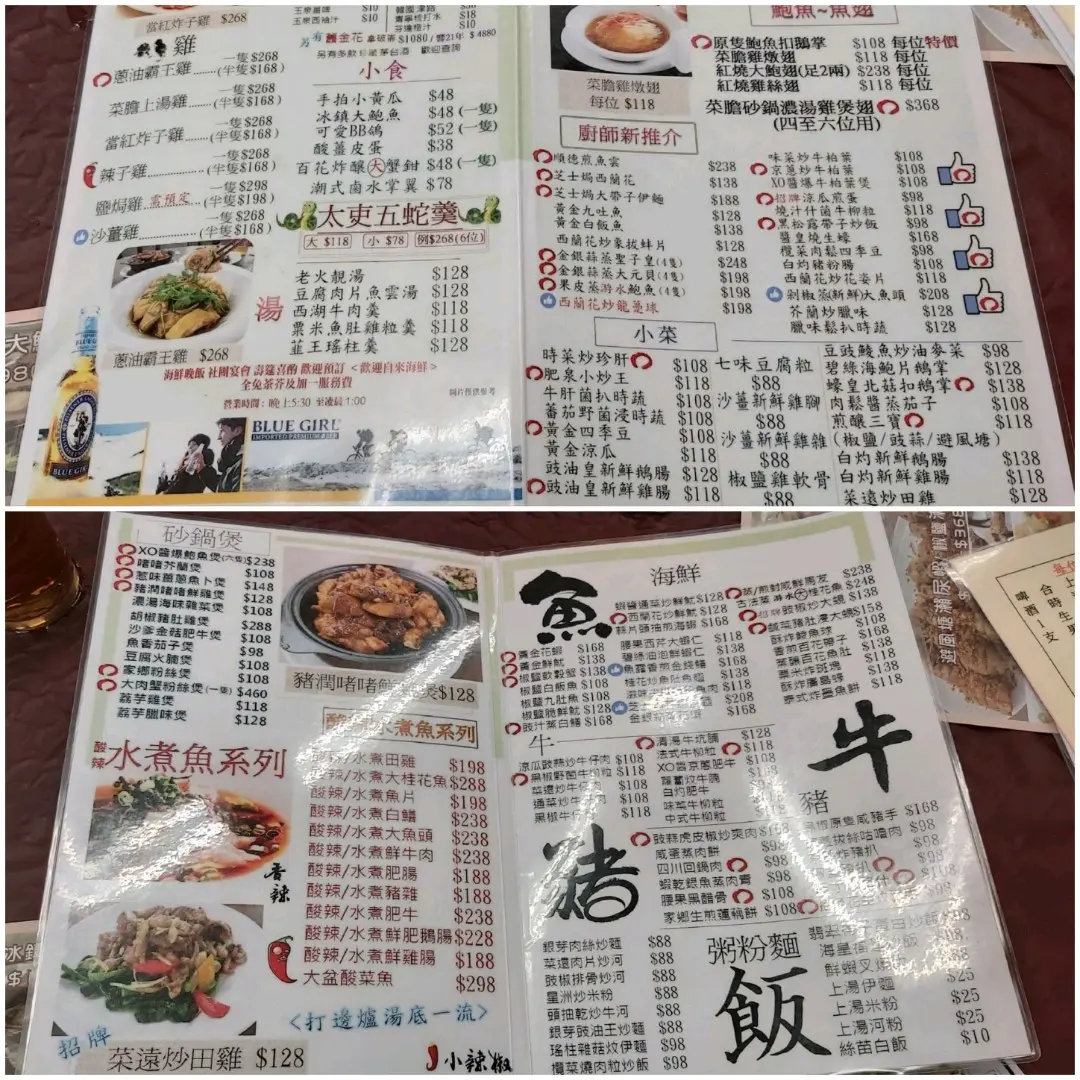 當紅炸子雞 $268
雞
蔥油霸王雞......一隻$268 (半隻$168)
菜膽上湯雞......一隻$268 (半隻$168)
當紅炸子雞......一隻$268 (半隻$168)
辣子雞......一隻$268 (半隻$168)
鹽焗雞 需預定 一隻$298 (半隻$198)
沙薑雞......一隻$268 (半隻$168)
蔥油霸王雞 $268
另有舊金花 拿破崙$1080/響21年$4880
另有多款珍藏茅台酒 歡迎查詢
小食
手拍小黃瓜 $48
冰鎮大鮑魚 $48 (一隻)
可愛BB鴿 $52 (一隻)
酸薑皮蛋 $38
百花炸釀大蟹鉗 $48 (一隻)
潮式鹵水掌翼 $78
太吏五蛇羹
大 $118 小 $78 例$268(6位)
湯
老火靚湯 $128
豆腐肉片魚雲湯 $128
西湖牛肉羹 $118
粟米魚肚雞粒羹 $118
韮王瑤柱羹 $128
海鮮晚飯 社團宴會 壽筵喜酌 歡迎預訂 <歡迎自來海鮮>
全免茶芥及加一服務費
圖片僅供參考
營業時間:晚上5:30 至凌晨1:00
BLUE GIRL
IMPORTED PREMIUM BEER
BLUE GIRL
菜膽雞燉翅
每位 $118
鮑魚~魚翅
原隻鮑魚扣鵝掌 $108 每位特價
菜膽雞燉翅 $118 每位
紅燒大鮑翅(足2兩) $238 每位
紅燒雞絲翅 $118 每位
菜膽砂鍋濃湯雞煲翅 $368
(四至六位用)
廚師新推介
順德煎魚雲 $238
芝士焗西蘭花 $138
芝士焗大帶子伊麵 $188
黃金九吐魚 $128
黃金白飯魚 $138
西蘭花炒象拔蚌片 $128
金銀蒜蒸聖子皇(4隻) $248
金銀蒜蒸大元貝(4隻) $198
果皮蒸游水鮑魚(4隻) $198
西蘭花炒龍躉球
味菜炒牛柏葉 $108
京蔥炒牛柏葉 $108
XO醬爆牛柏葉煲 $108
招牌涼瓜煎蛋 $98
燒汁什菌牛柳粒 $118
黑松露帶子炒飯 $98
醬皇燒生蠔 $168
欖菜肉鬆四季豆 $98
白灼豬粉腸 $108
西蘭花炒花姿片 $118
剁椒蒸(新鮮)大魚頭 $208
芥蘭炒臘味 $128
臘味鬆扒時蔬 $128
小菜
時菜炒珍肝 $108
肥泉小炒王 $118
牛肝菌扒時蔬 $108
蕃茄野菌浸時蔬 $108
黃金四季豆 $108
黃金涼瓜 $108
豉油皇新鮮鵝腸 $128
豉油皇新鮮雞腸 $118
七味豆腐粒 $88
沙薑新鮮雞腳 $88
沙薑新鮮雞雜 $88
椒鹽雞軟骨 $88
豆豉鯪魚炒油麥菜 $98
碧綠海鮑片鵝掌 $128
蠔皇北菇扣鵝掌 $138
肉鬆醬蒸茄子 $108
煎釀三寶 $108
(椒鹽/豉蒜/避風塘)
白灼新鮮鵝腸 $138
白灼新鮮雞腸 $118
菜遠炒田雞 $128
砂鍋煲
XO醬爆鮑魚煲(六隻) $238
啫啫芥蘭煲 $108
惹味薑蔥魚卜煲 $148
豬潤啫啫鮮雞煲 $128
濃湯海味雜菜煲 $108
胡椒豬肚雞煲 $288
沙爹金菇肥牛煲 $108
魚香茄子煲 $98
豆腐火腩煲 $98
家鄉粉絲煲 $108
大肉蟹粉絲煲(一隻) $460
荔芋雞煲 $118
荔芋臘味煲 $128
酸辣
水煮魚系列
香辣
招牌
菜遠炒田雞 $128
水煮魚系列
酸辣/水煮田雞 $198
酸辣/水煮大桂花魚 $288
酸辣/水煮魚片 $198
酸辣/水煮白鱔 $238
酸辣/水煮大魚頭 $238
酸辣/水煮鮮牛肉 $238
酸辣/水煮肥腸 $188
酸辣/水煮豬雜 $188
酸辣/水煮肥牛 $238
酸辣/水煮鮮肥鵝腸 $228
酸辣/水煮鮮雞腸 $188
大盆酸菜魚 $298
<打邊爐湯底一流>
小辣椒
魚
海鮮
蝦醬通菜炒鮮魷 $128
西蘭花炒鮮魷 $118
蒜片頭抽煎海蝦 $168
黃金花蝦 $168
黃金鮮魷 $138
椒鹽瀨尿蝦
椒鹽白飯魚 $108
椒鹽九肚魚 $108
椒鹽脆鮮魷 $128
豉汁蒸白鱔 $168
腰果西芹大蝦仁 $118
碧綠油泡鮮蝦仁 $138
蒸/煎封咸鮮馬友 $238
古法蒸游水大桂花魚 $248
招牌豉椒炒大蜆 $138
鹹菜豬肚浸大蜆 $158
酥炸鯪魚球 $108
香煎百花鴨子 $138
蒸釀百花魚肚 $118
粟米炸魚肚 $118
酥炸廣島蠔 $138
泰式炸墨魚餅 $118
牛
牛
涼瓜豉蒜炒牛仔肉 $108
黑椒野菌牛柳粒 $118
菜遠炒牛仔肉 $108
通菜炒牛仔肉 $108
黑椒牛仔骨
清湯牛坑腩 $128
法式牛柳粒 $118
XO醬京蔥肥牛 $108
蘿蔔炆牛腩
白灼肥牛
味菜牛柳粒
中式牛柳粒 $108
豬
豬
豉蒜虎皮椒炒爽肉 $108
咸蛋蒸肉餅 $98
四川回鍋肉 $98
蝦乾銀魚蒸肉青 $98
腰果黑醋骨 $108
家鄉生煎蓮藕餅 $108
粥粉麵
飯
銀芽肉絲炒麵 $88
菜遠肉片炒河 $88
豉椒排骨炒河 $88
星洲炒米粉 $88
頭抽乾炒牛河 $88
銀芽豉油王炒麵 $88
瑤柱雜菇炆伊麵 $98
欖菜燒肉粒炒飯 $98
上湯伊麵 $25
上湯米粉 $25
上湯河粉 $25
絲苗白飯 $10